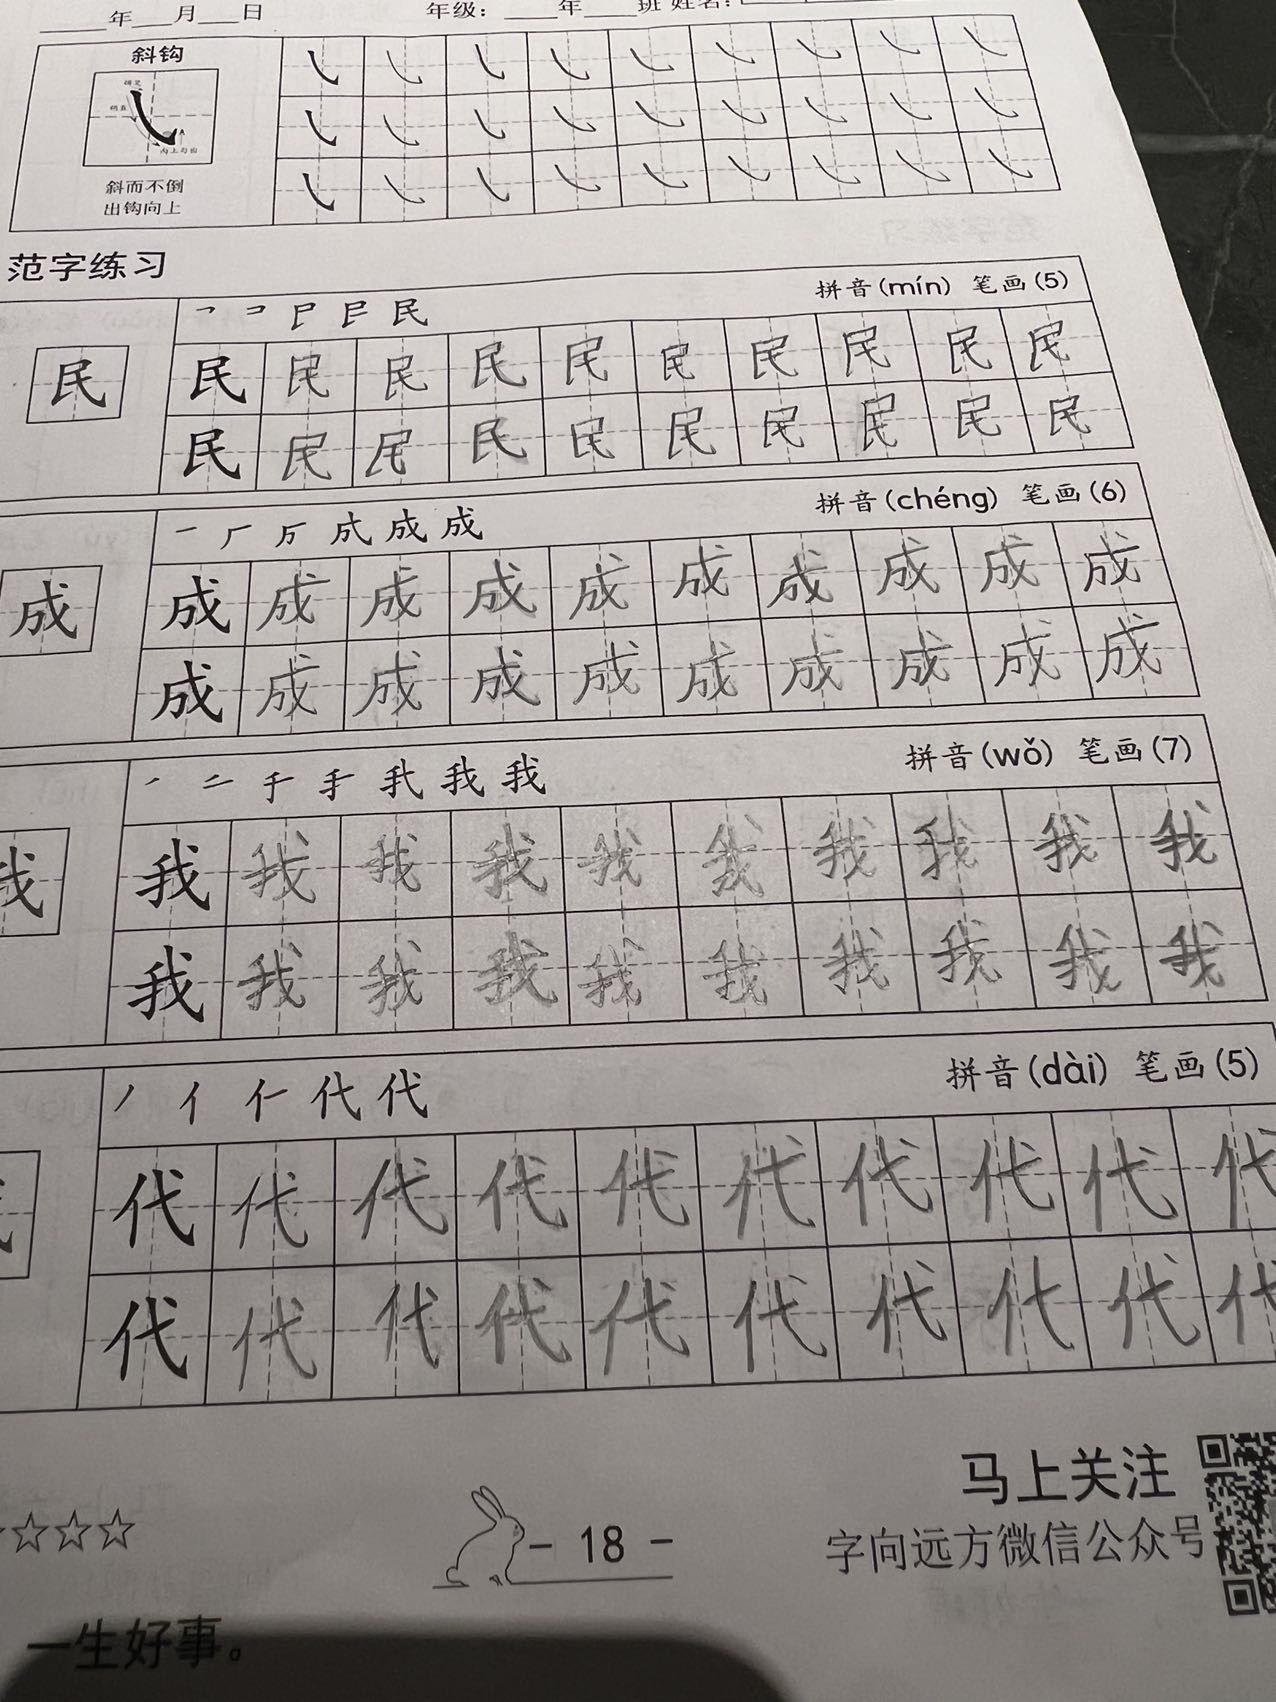 年 月 日 年级： 年 班 姓名：
斜钩
斜而不倒
出钩向上
范字练习
拼音(mín) 笔画(5)
民
民 民 民 民 民 民 民 民 民 民
民 民 民 民 民 民 民 民 民 民
拼音(chéng) 笔画(6)
成
成 成 成 成 成 成 成 成 成 成
成 成 成 成 成 成 成 成 成 成
拼音(wǒ) 笔画(7)
我
我 我 我 我 我 我 我 我 我 我
我 我 我 我 我 我 我 我 我 我
拼音(dài) 笔画(5)
代 代 代 代 代 代 代 代 代 代
代 代 代 代 代 代 代 代 代 代
马上关注
字向远方微信公众号
- 18 -
一生好事。